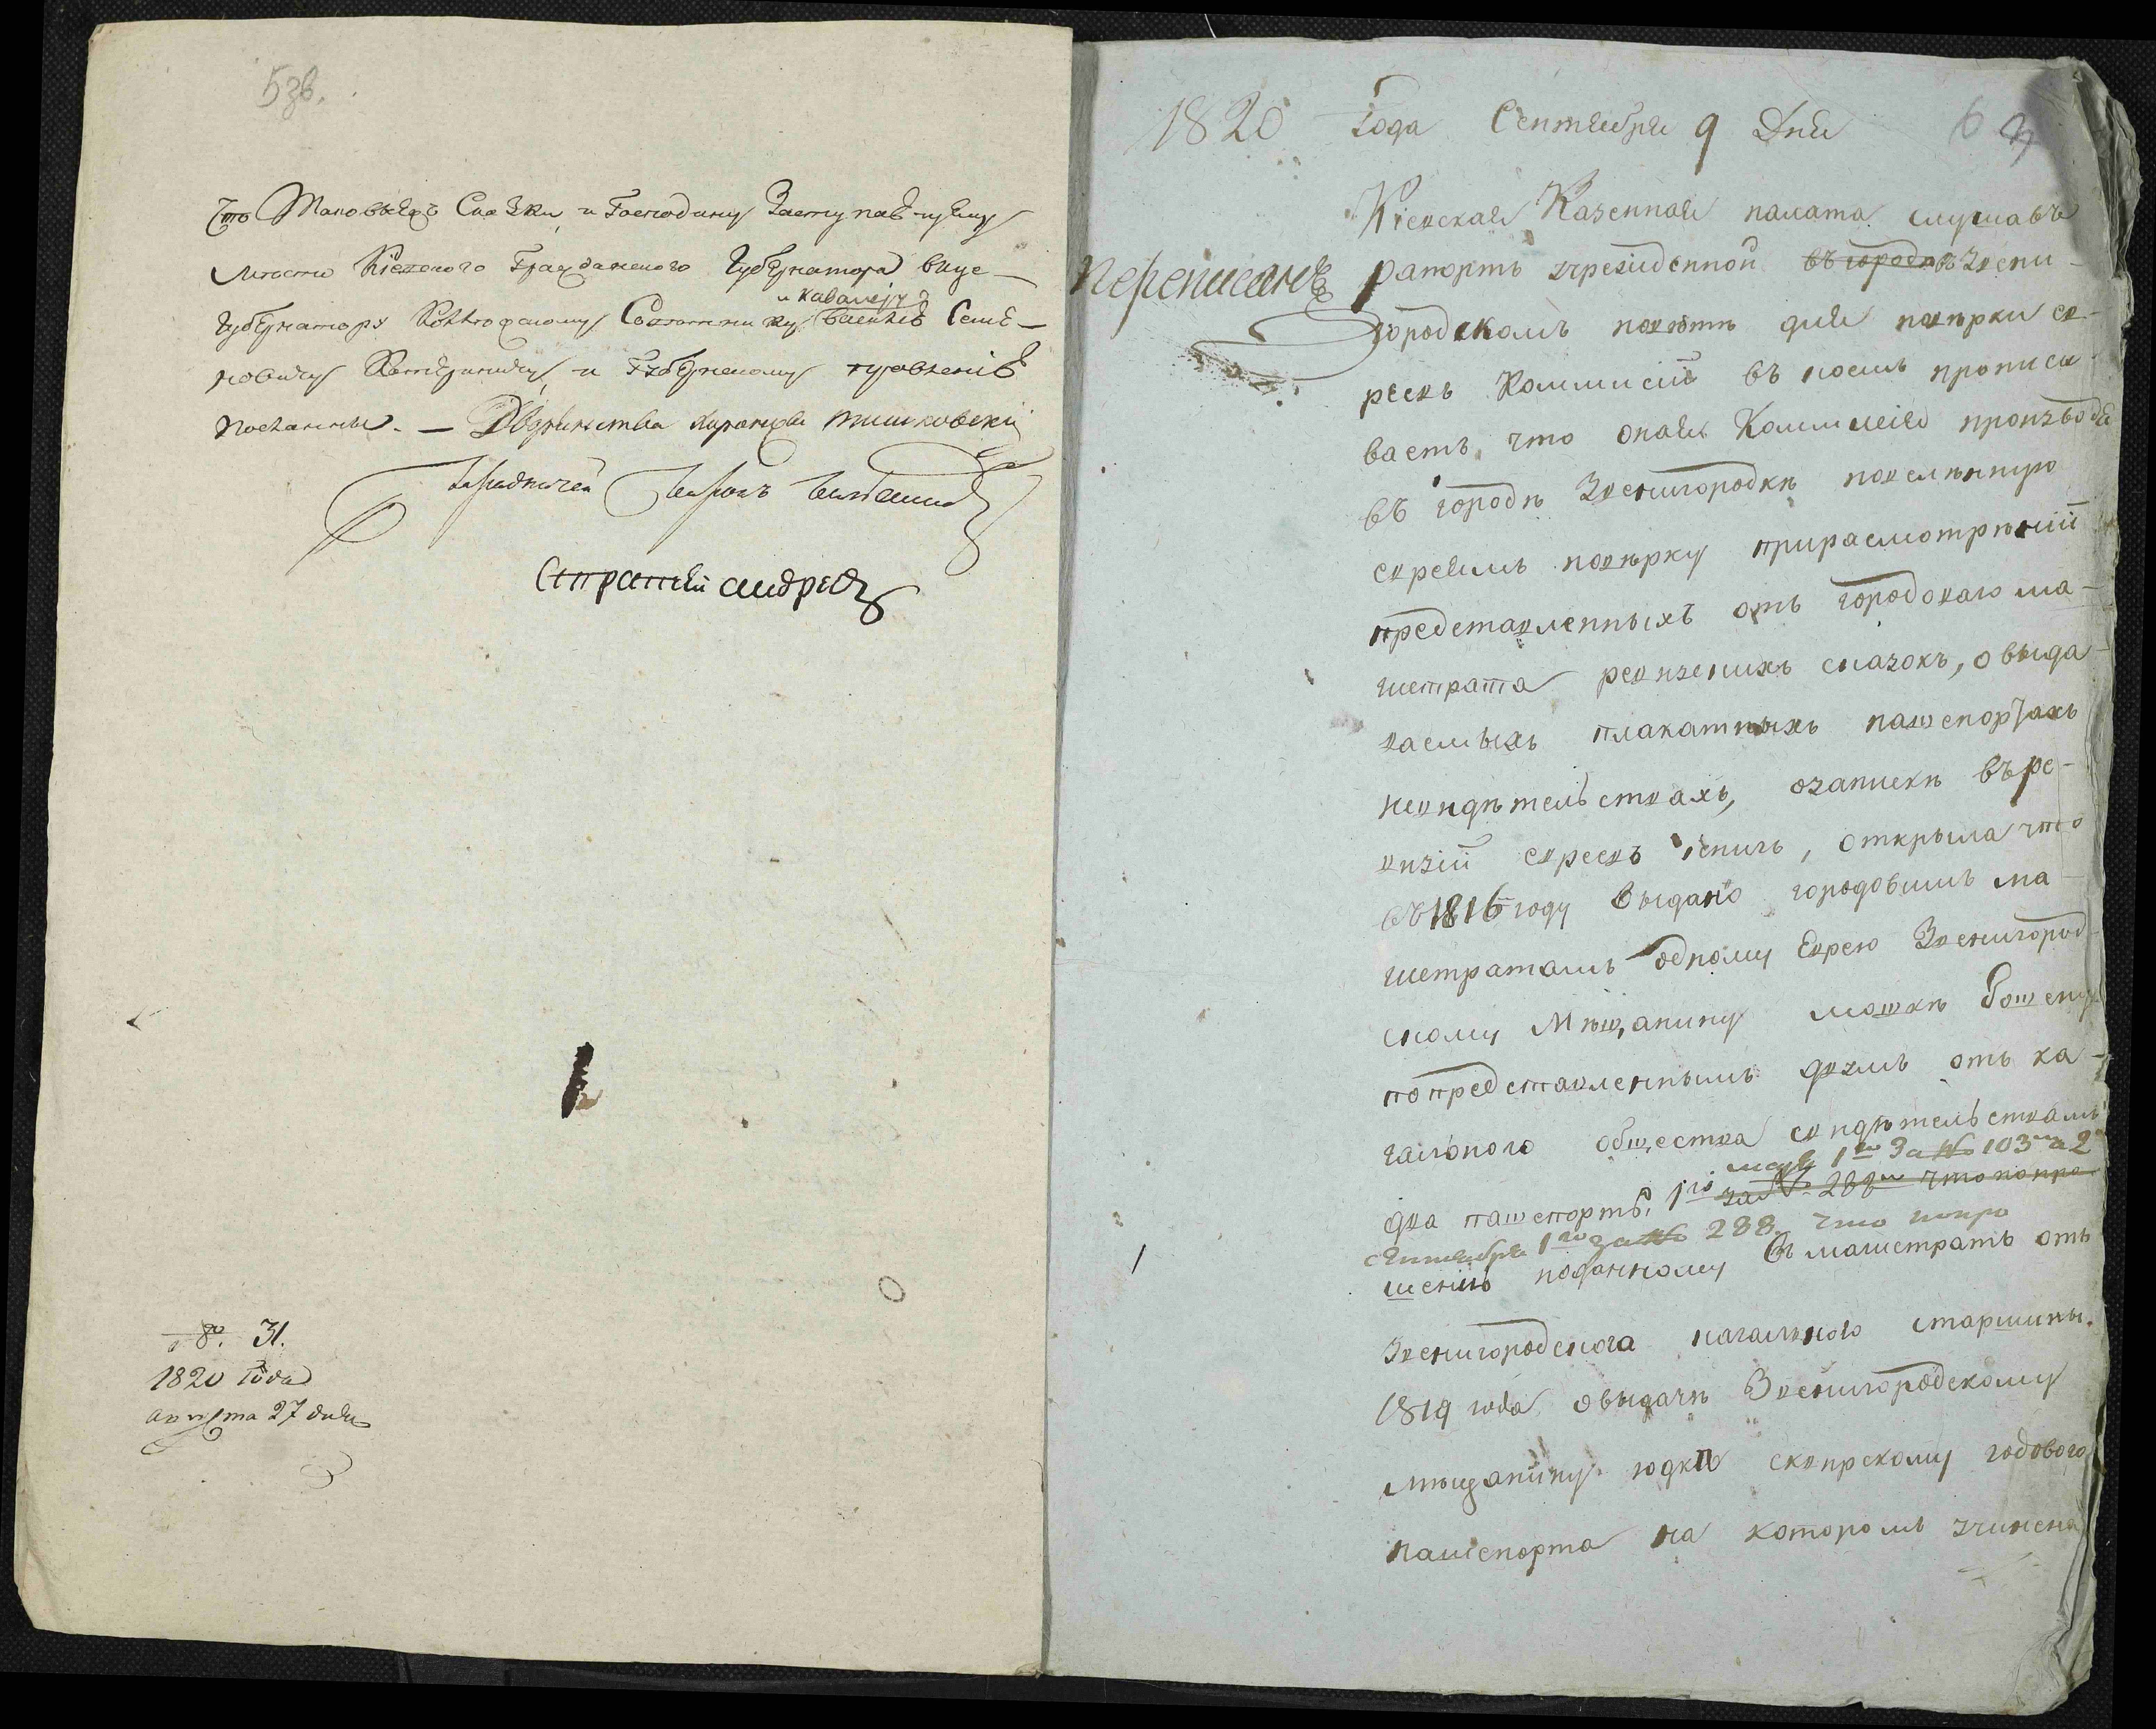 53в.
Что таковые Сказки, и Господину Заступающему
мѣсто Кіевского Гражданского Губернатора вице-
Губернатору Коллежскому Советнику и кавалеру василію Семе-
новичу Катериничу, и Губернскому правленію
посланы. — Дворянства хорунжій тишковскій
Стряпчій андрей
№. 31.
1820 года
августа 27 дня
1820 Года Сентября 9 Дня
6
Кіевская Казенная палата слушавъ
переписанъ
рапортъ учрежденной въ городѣ въ Звени-
городскомъ повѣтѣ для повѣрки ев-
реевъ Коммисіи въ коемъ прописы-
ваетъ, что оная Коммисія производя
въ городѣ Звенигородкѣ повсемѣстную
евреямъ повѣрку при расмотрѣніи
представленныхъ отъ городскаго ма-
гистрата ревизскихъ сказокъ, о выда-
ваемыхъ плакатныхъ пашпортахъ
и свидѣтельствахъ, о запискѣ въ ре-
визіи евреевъ, открыла что
въ 1816 году выдано городовымъ ма-
гистратомъ одному Еврею Звенигород-
скому Мѣщанину мошкѣ
по представленнымъ двумъ отъ ка-
гального общества свидѣтельствамъ
два пашпорты, 1го мая 1го за № 103м а 2й
за № 288м что по про
сентября 1го за № 288. что по про
шенію поданному въ магистратъ отъ
Звенигородскога кагального старшины
1819 года о выдачѣ Звенигородскому
мѣщанину юдкѣ сквирскому годового
пашпорта на которомъ учинена